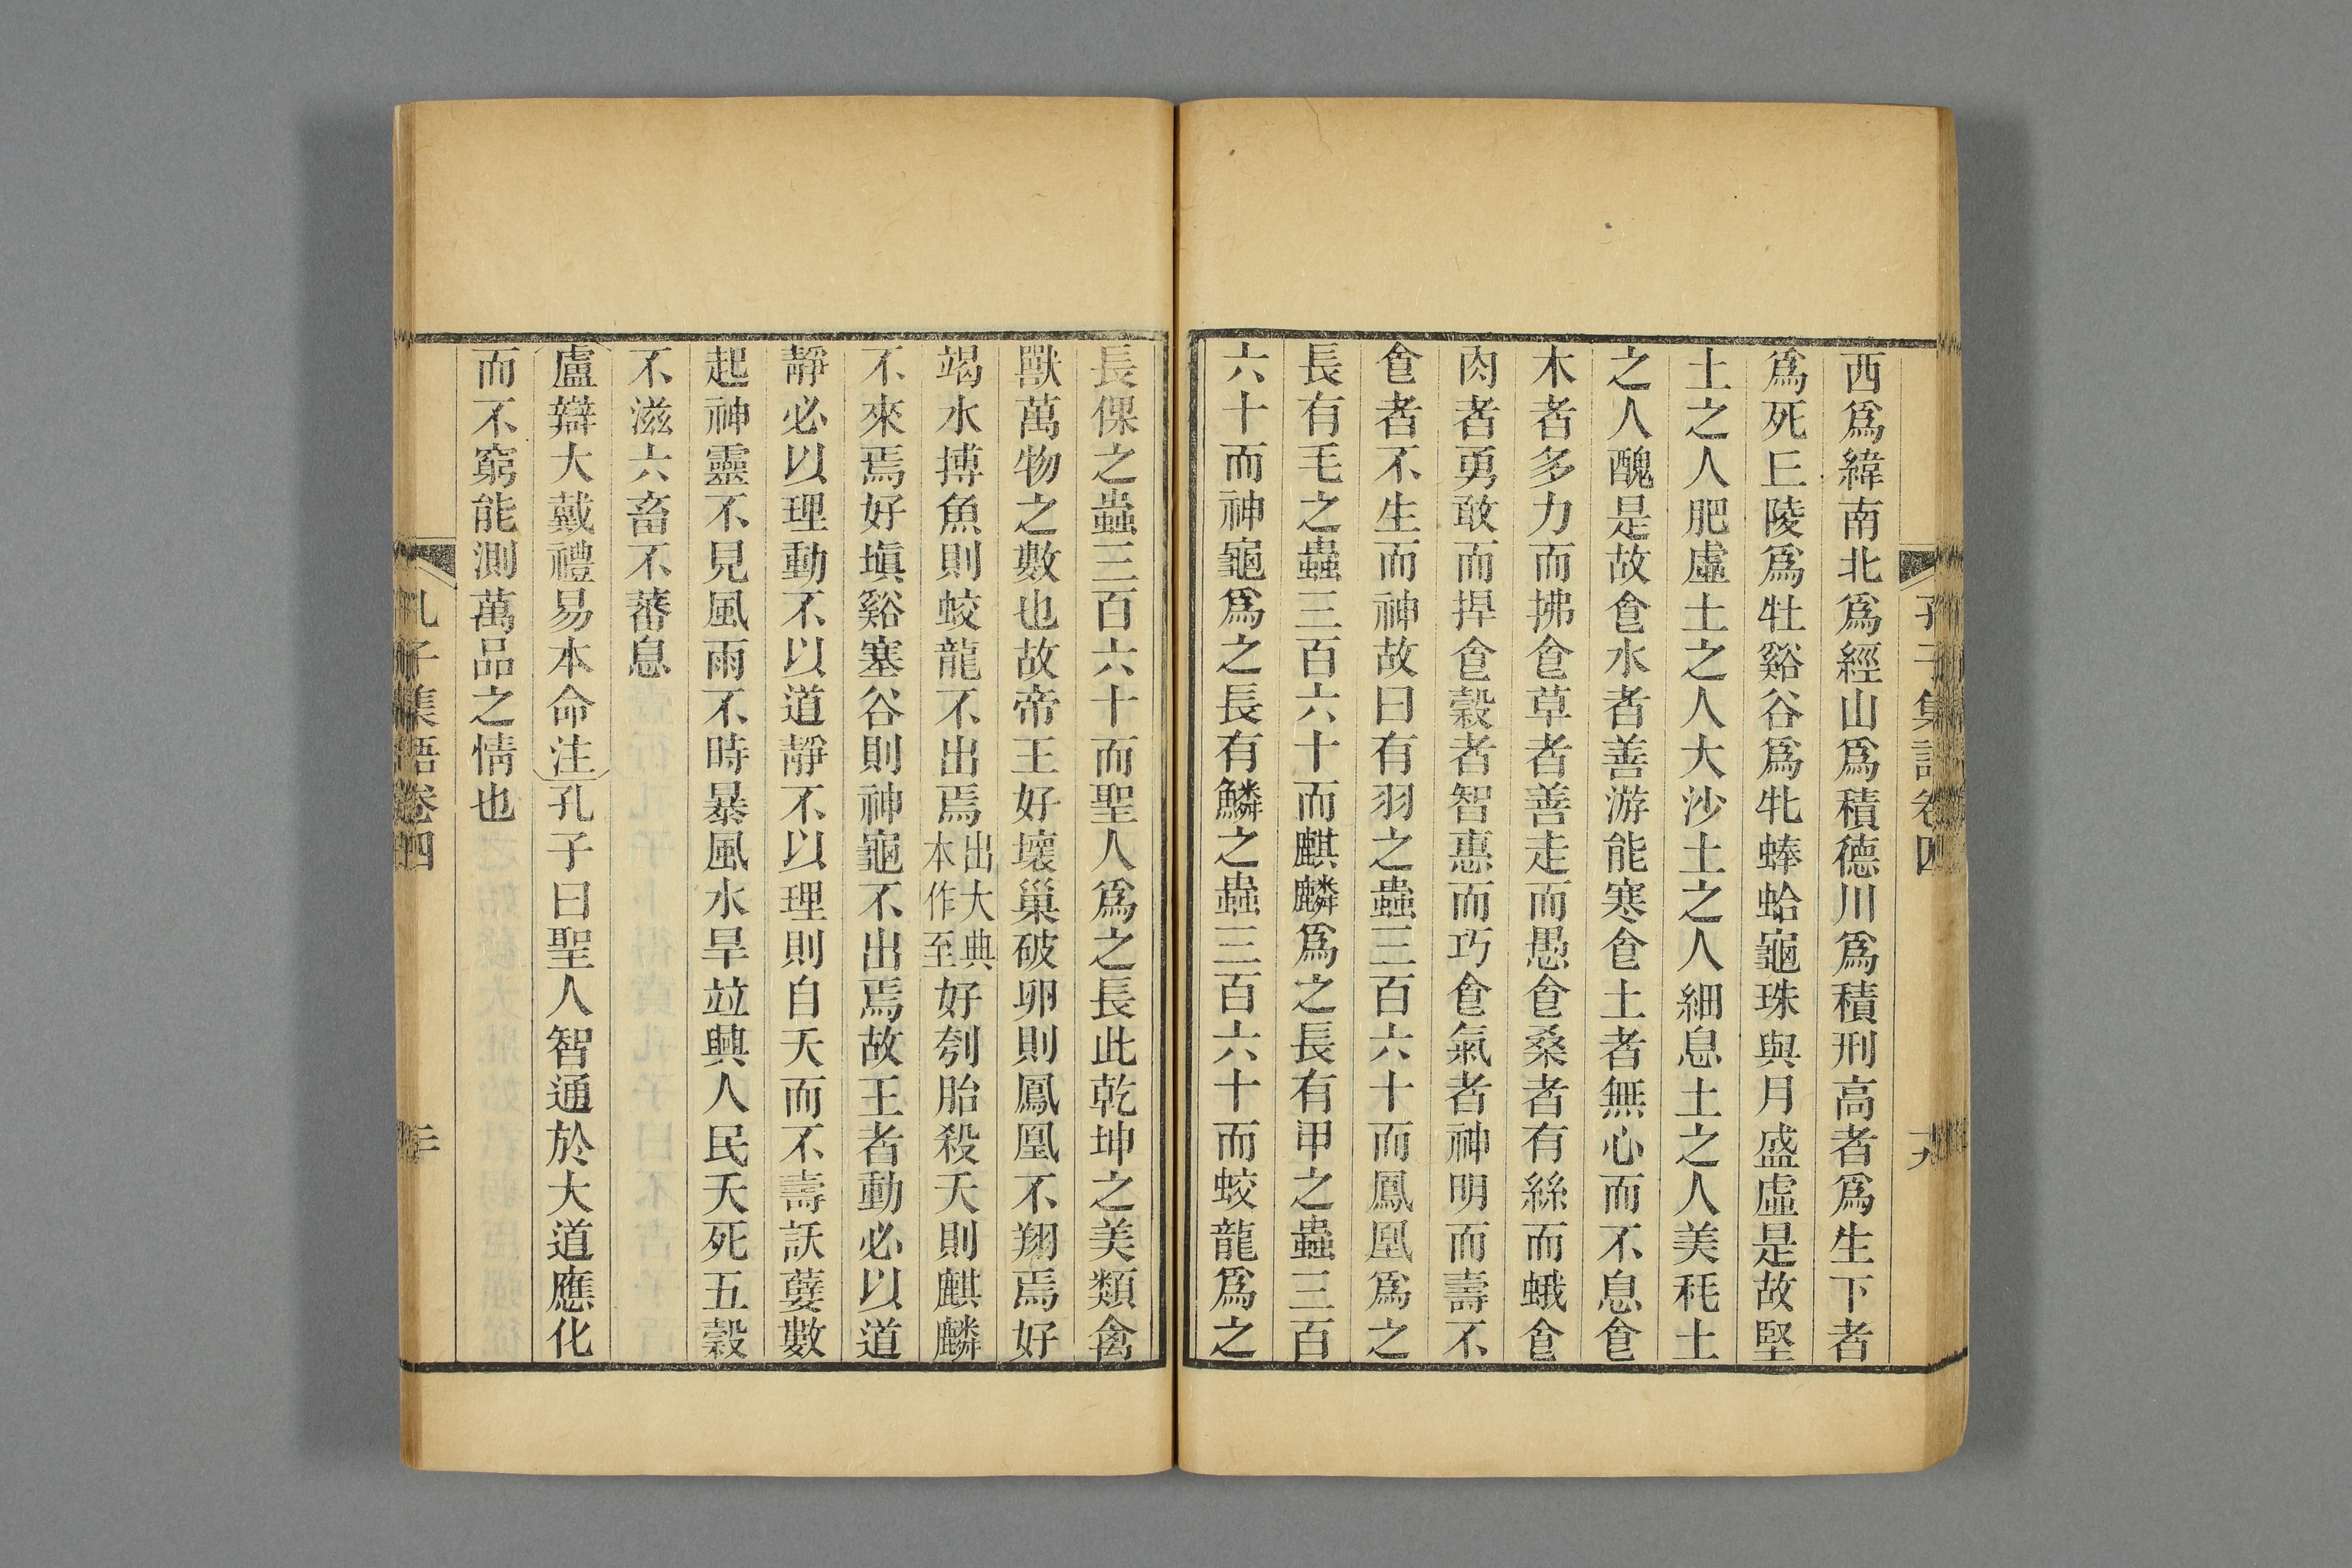 孔子集語卷四
十九
西爲緯南北爲經山爲積德川爲積刑高者爲生下者
爲死𠀉陵爲牡谿谷爲牝蜯蛤龜珠與月盛虛是故堅
土之人肥虛土之人大沙土之人細息土之人美秏土
之人醜是故𩚁水者善游能寒𩚁土者無心而不息𩚁
木者多力而拂𩚁草者善走而愚𩚁桑者有絲而蛾𩚁
肉者勇敢而捍𩚁穀者智惠而巧𩚁氣者神明而壽不
𩚁者不生而神故曰有羽之蟲三百六十而鳳凰爲之
長有毛之蟲三百六十而麒麟爲之長有甲之蟲三百
六十而神龜爲之長有鱗之蟲三百六十而蛟龍爲之
長倮之蟲三百六十而聖人爲之長此乾坤之美類禽
獸萬物之數也故帝王好壞巢破卵則鳳凰不翔焉好
竭水搏魚則蛟龍不出焉出大典本作至好刳胎殺夭則麒麟
不來焉好塡谿塞谷則神龜不出焉故王者動必以道
靜必以理動不以道靜不以理則自夭而不壽訞孽數
起神靈不見風雨不時暴風水旱竝興人民夭死五穀
不滋六畜不蕃息
盧辯大戴禮易本命注孔子曰聖人智通於大道應化
而不窮能測萬品之情也
孔子集語卷四